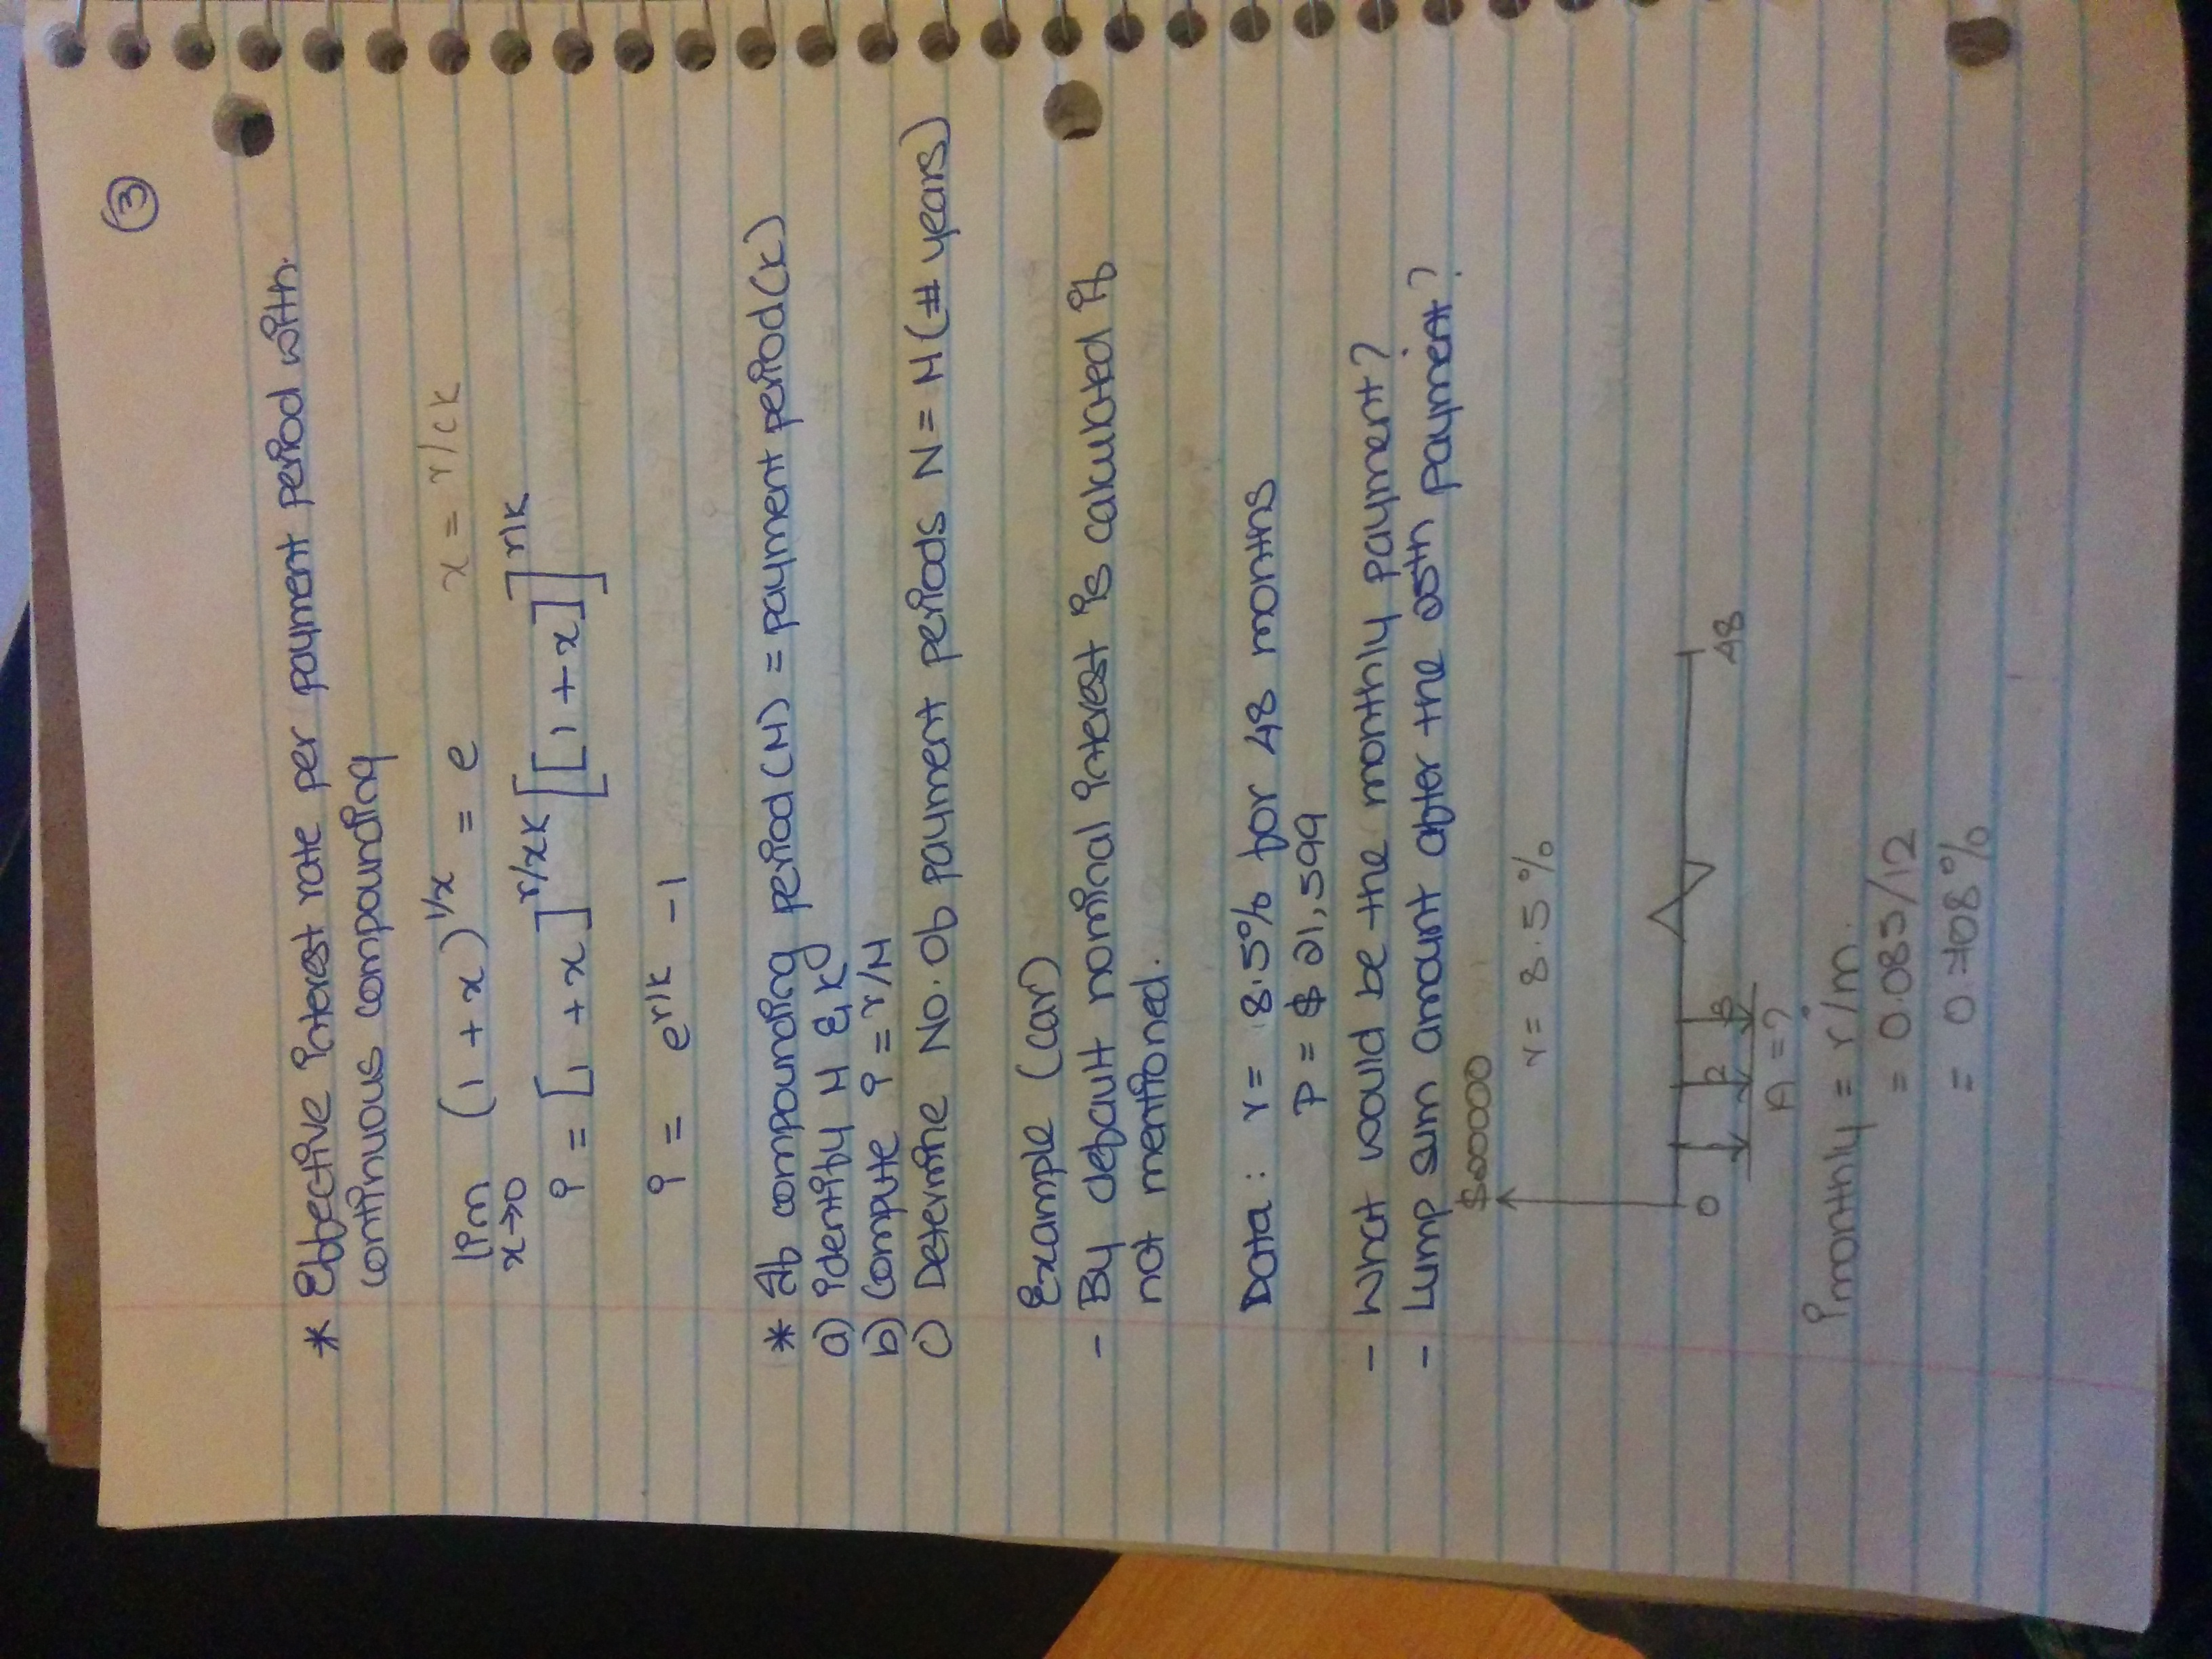 3
* Effective interest rate per payment period with.
continuous compounding
lim (1 + x)^1/x = e x = r/ck
x→0
i = [1 + x]^r/xk [[1 + x]]^r/k
i = e^r/k - 1
* If compounding period (M) = payment period (K)
a) identify M & K
b) Compute i = r/M
c) Determine No. of payment periods N = M (# years)
Example (car)
- By default nominal interest is calculated if
not mentioned.
Data : r = 8.5% for 48 months
P = $ 21,599
- What would be the monthly payment?
- Lump sum amount after the 25th payment?
$20000
r = 8.5%
0 1 2 3 48
A = ?
imonthly = r/m.
= 0.085/12
= 0.708%